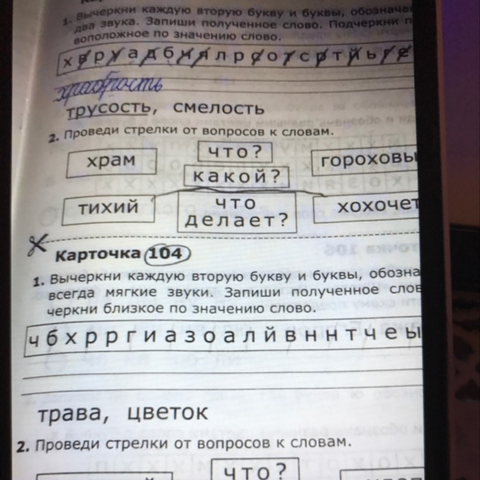 1. Вычеркни каждую вторую букву и буквы, обозначаю
два звука. Запиши полученное слово. Подчеркни п
воположное по значению слово.
х ё р у а д б ю я л р с о т с р т й ь
храбрость
трусость, смелость
2. Проведи стрелки от вопросов к словам.
храм что? гороховы
какой?
тихий что делает? хохочет
Карточка 104
1. Вычеркни каждую вторую букву и буквы, обозна
всегда мягкие звуки. Запиши полученное слов
черкни близкое по значению слово.
ч б х р р г и а з о а л й в н н т ч е ы
трава, цветок
2. Проведи стрелки от вопросов к словам.
что?